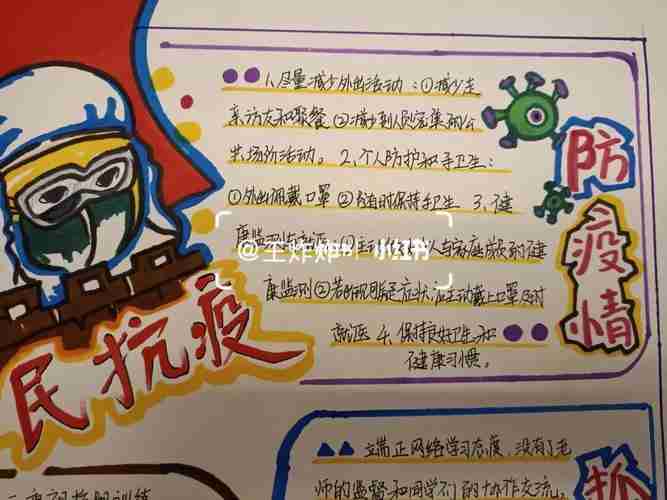 1、尽量减少外出活动：①减少走
亲访友和聚餐②减少到人员密集的公
共场所活动。2、个人防护和手卫生：
①外出佩戴口罩②随时保持手卫生 3、健
康监测与就医①主动做好个人与家庭成员的健
康监测②若出现可疑症状，应主动戴上口罩及时
就医 4、保持良好卫生和
健康习惯。
防
疫
情
民抗疫
小红书
端正网络学习态度，没有了老
师的监督和同学们的协作交流，